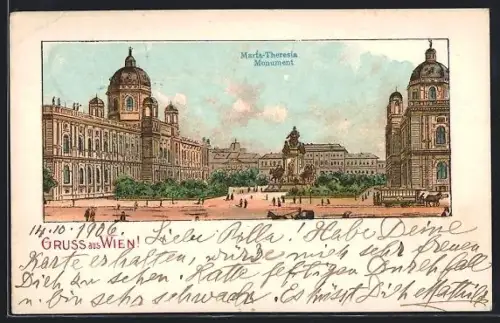 Maria-Theresia
Monument
14.10.1906.
GRUSS aus WIEN!
Liebe Bella! Habe Deine
Karte erhalten, würde mich sehr freuen
Dich zu sehen. Hatte heftigen Durchfall
u. bin sehr schwach. Es küsst Dich Mathilde